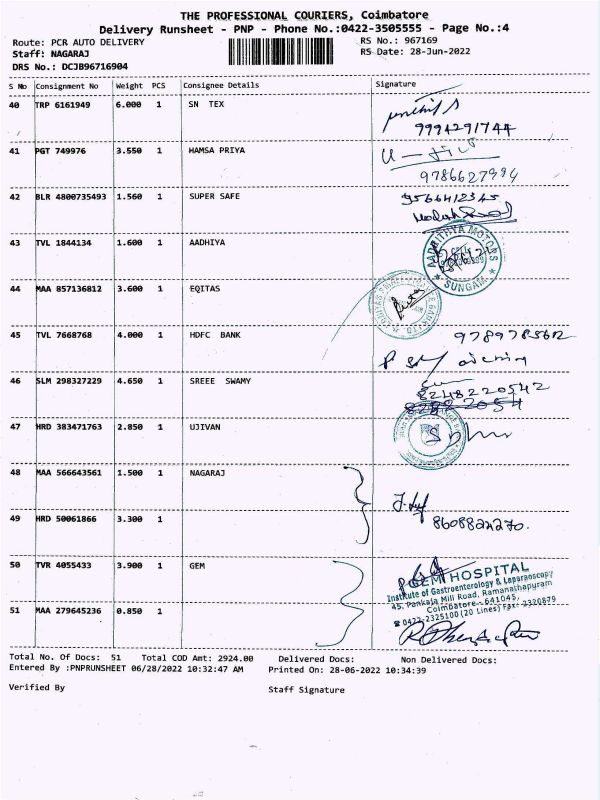 THE PROFESSIONAL COURIERS, Coimbatore
Delivery Runsheet - PNP - Phone No.:0422-3505555 - Page No.:4
Route: PCR AUTO DELIVERY RS No.: 967169
Staff: NAGARAJ RS Date: 28-Jun-2022
DRS No.: DCJB96716904
S No Consignment No Weight PCS Consignee Details Signature
40 TRP 6161949 6.000 1 SN TEX
9994291744
41 PGT 749976 3.550 1 HAMSA PRIYA
9786627994
42 BLR 4800735493 1.560 1 SUPER SAFE 9566412345
43 TVL 1844134 1.600 1 AADHIYA
AADHITHYA MOTORS
SUNGAM
44 MAA 857136812 3.600 1 EQITAS
45 TVL 7668768 4.000 1 HDFC BANK
46 SLM 298327229 4.650 1 SREEE SWAMY
8248220542
47 HRD 383471763 2.850 1 UJIVAN
48 MAA 566643561 1.500 1 NAGARAJ
49 HRD 50061866 3.300 1
8608824270.
50 TVR 4055433 3.900 1 GEM
GEM HOSPITAL
Institute of Gastroenterology & Laparoscopy
45, Pankaja Mill Road, Ramanathapuram
Coimbatore - 641045,
0422-2325100 (20 Lines) Fax: 2320879
51 MAA 279645236 0.850 1
Total No. Of Docs: 51 Total COD Amt: 2924.00 Delivered Docs: Non Delivered Docs:
Entered By :PNPRUNSHEET 06/28/2022 10:32:47 AM Printed On: 28-06-2022 10:34:39
Verified By Staff Signature